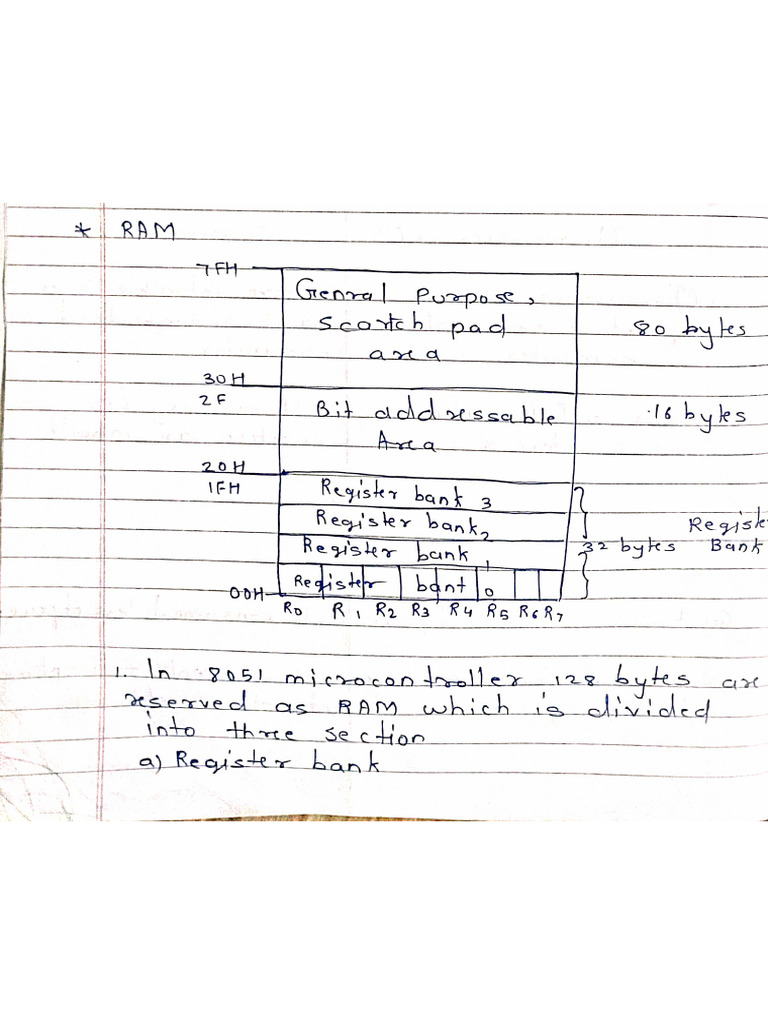 * RAM
7FH
Genral Purpose,
Scortch pad
area
80 bytes
30H
2F
Bit addressable
Area
16 bytes
20H
1FH
Register bank 3
Register bank 2
Register bank 1
32 bytes
Bank
Register bant 0
00H
R0 R1 R2 R3 R4 R5 R6 R7
1. In 8051 microcontroller 128 bytes are
reserved as RAM which is divided
into three section
a) Register bank